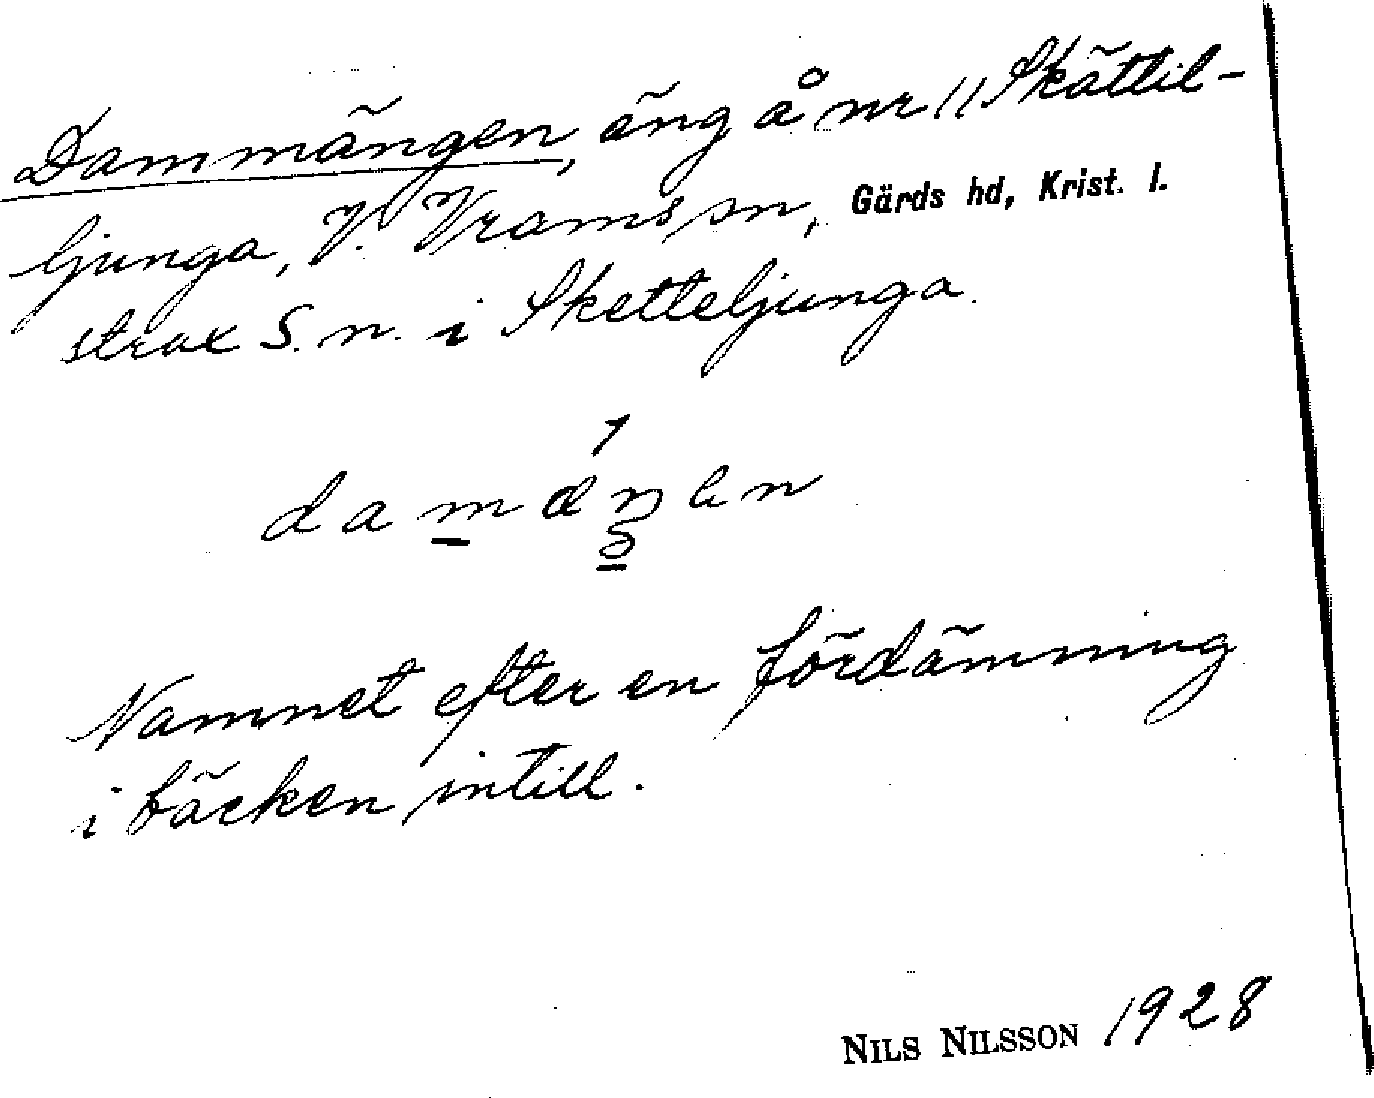 Dammängen, äng å nr 11 Skättil-
ljunga, V. Vrams sn, Gärds hd, Krist. l.
strax S. n. i Sketteljunga.
damæŋen
Namnet efter en fördämning
i bäcken intill.
NILS NILSSON 1928